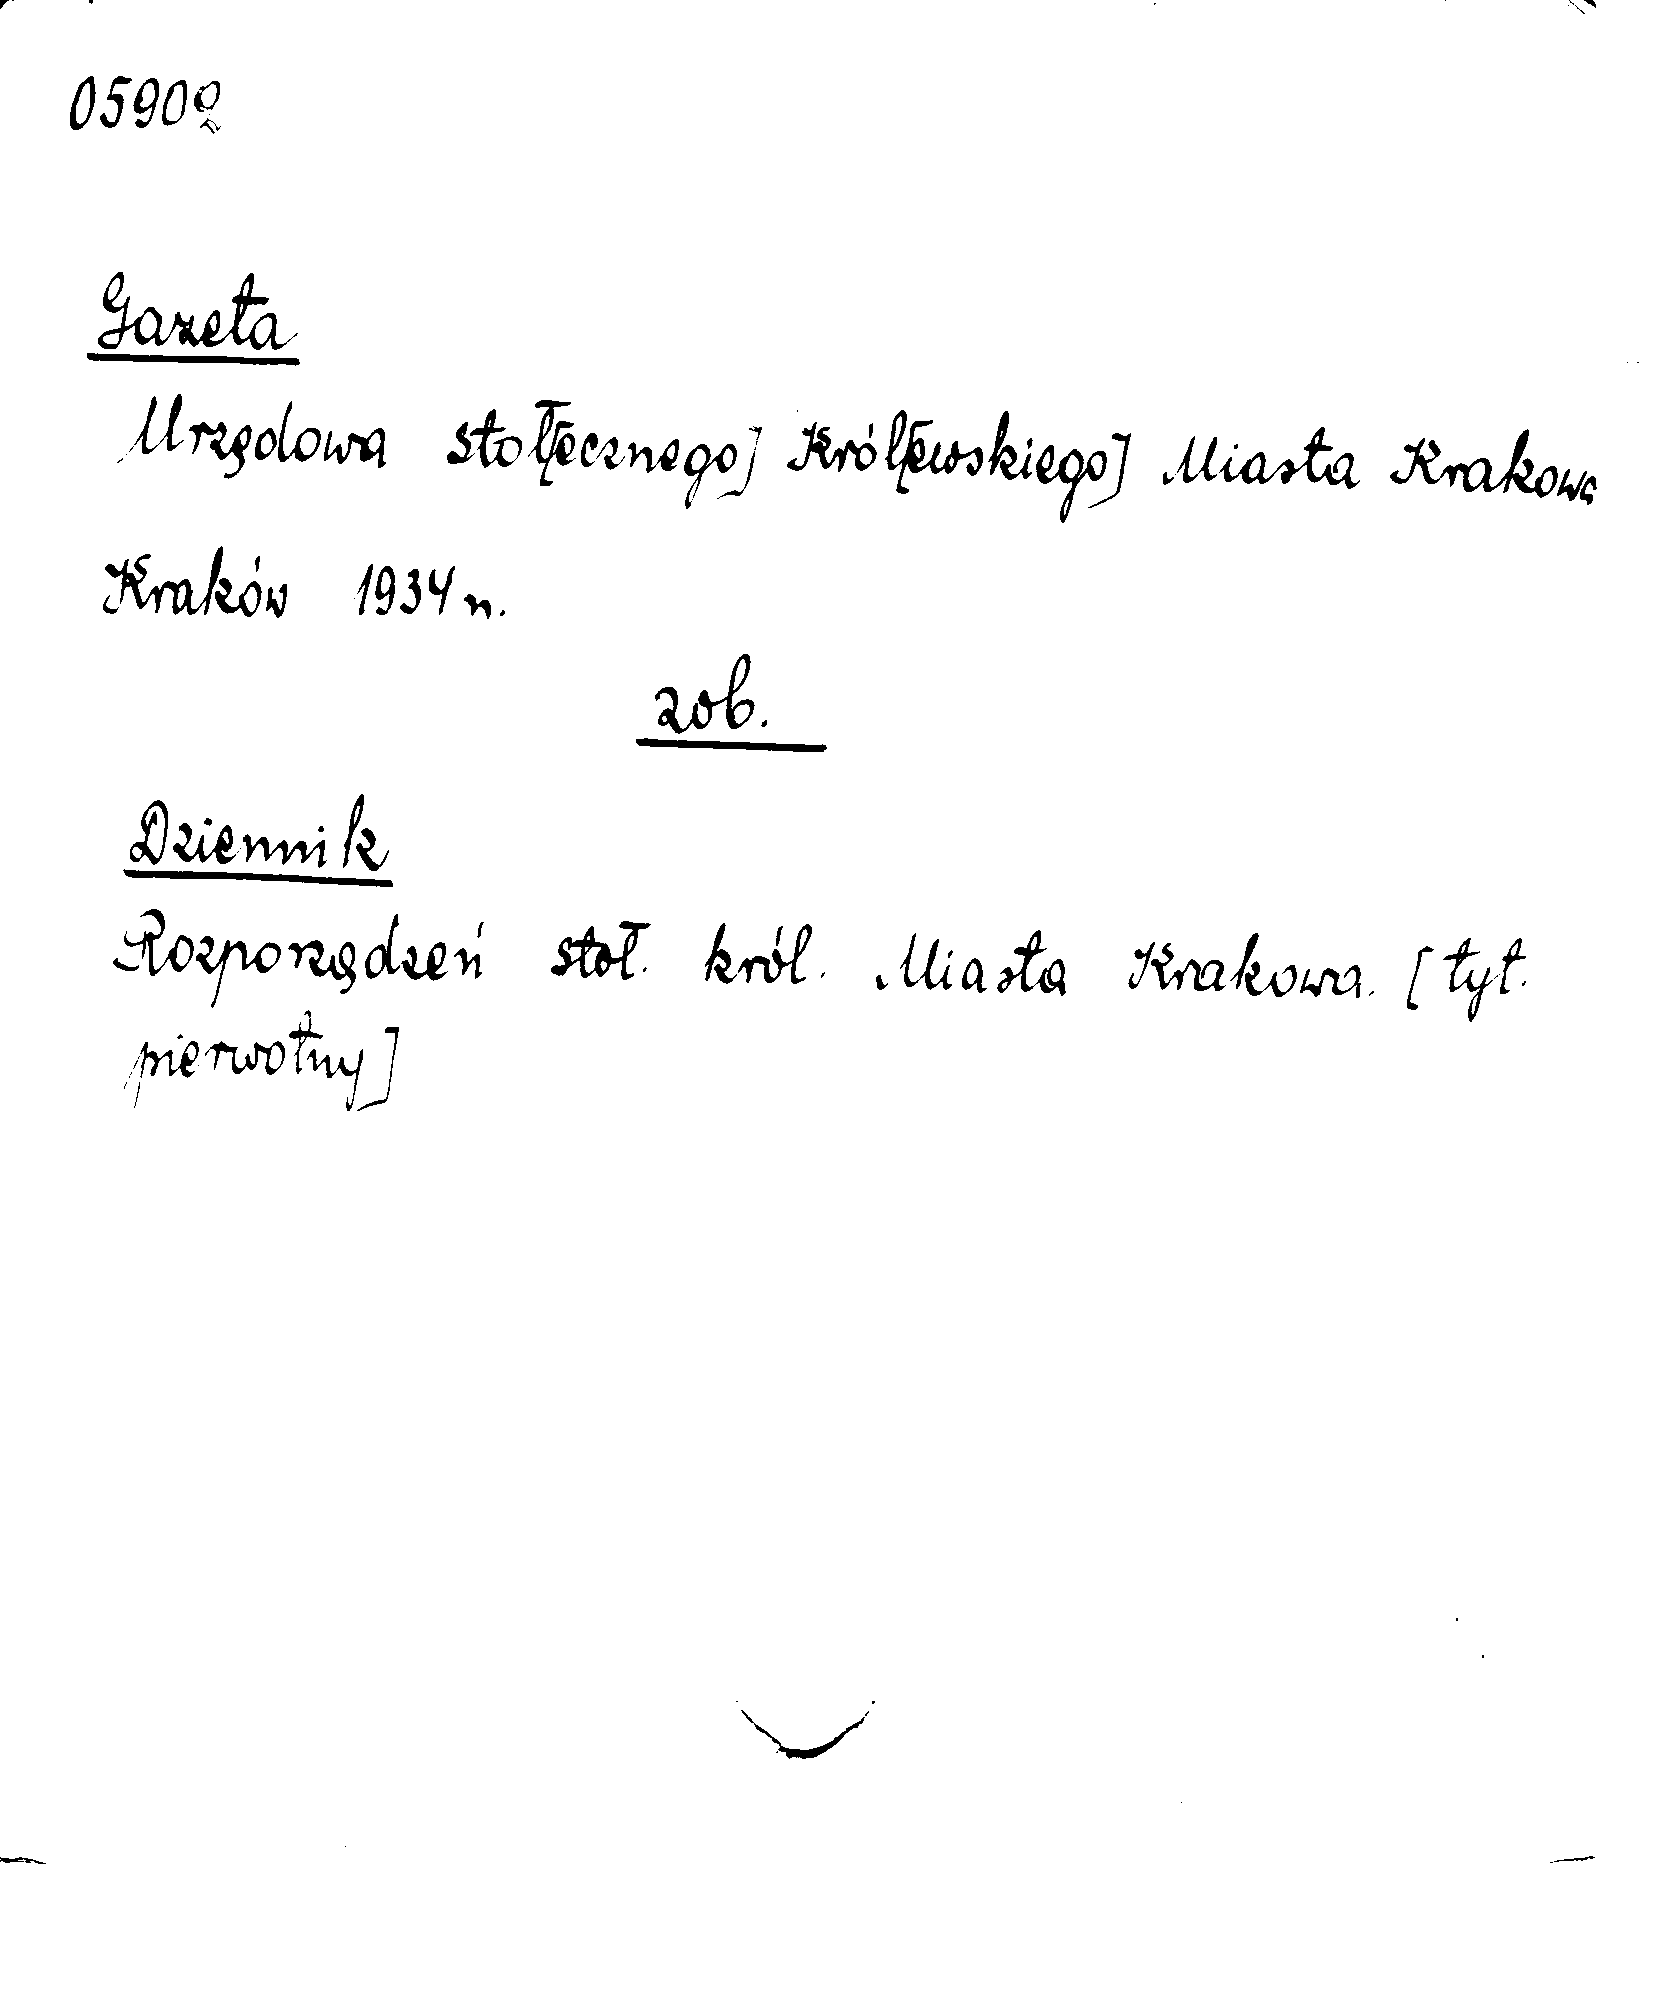 05902
Gazeta
Urzędowa stoł[ecznego] Król[ewskiego] Miasta Krakowa
Kraków 1934 r.
zob.
Dziennik
Rozporządzeń stoł. król. Miasta Krakowa. [tyt.
pierwotny]